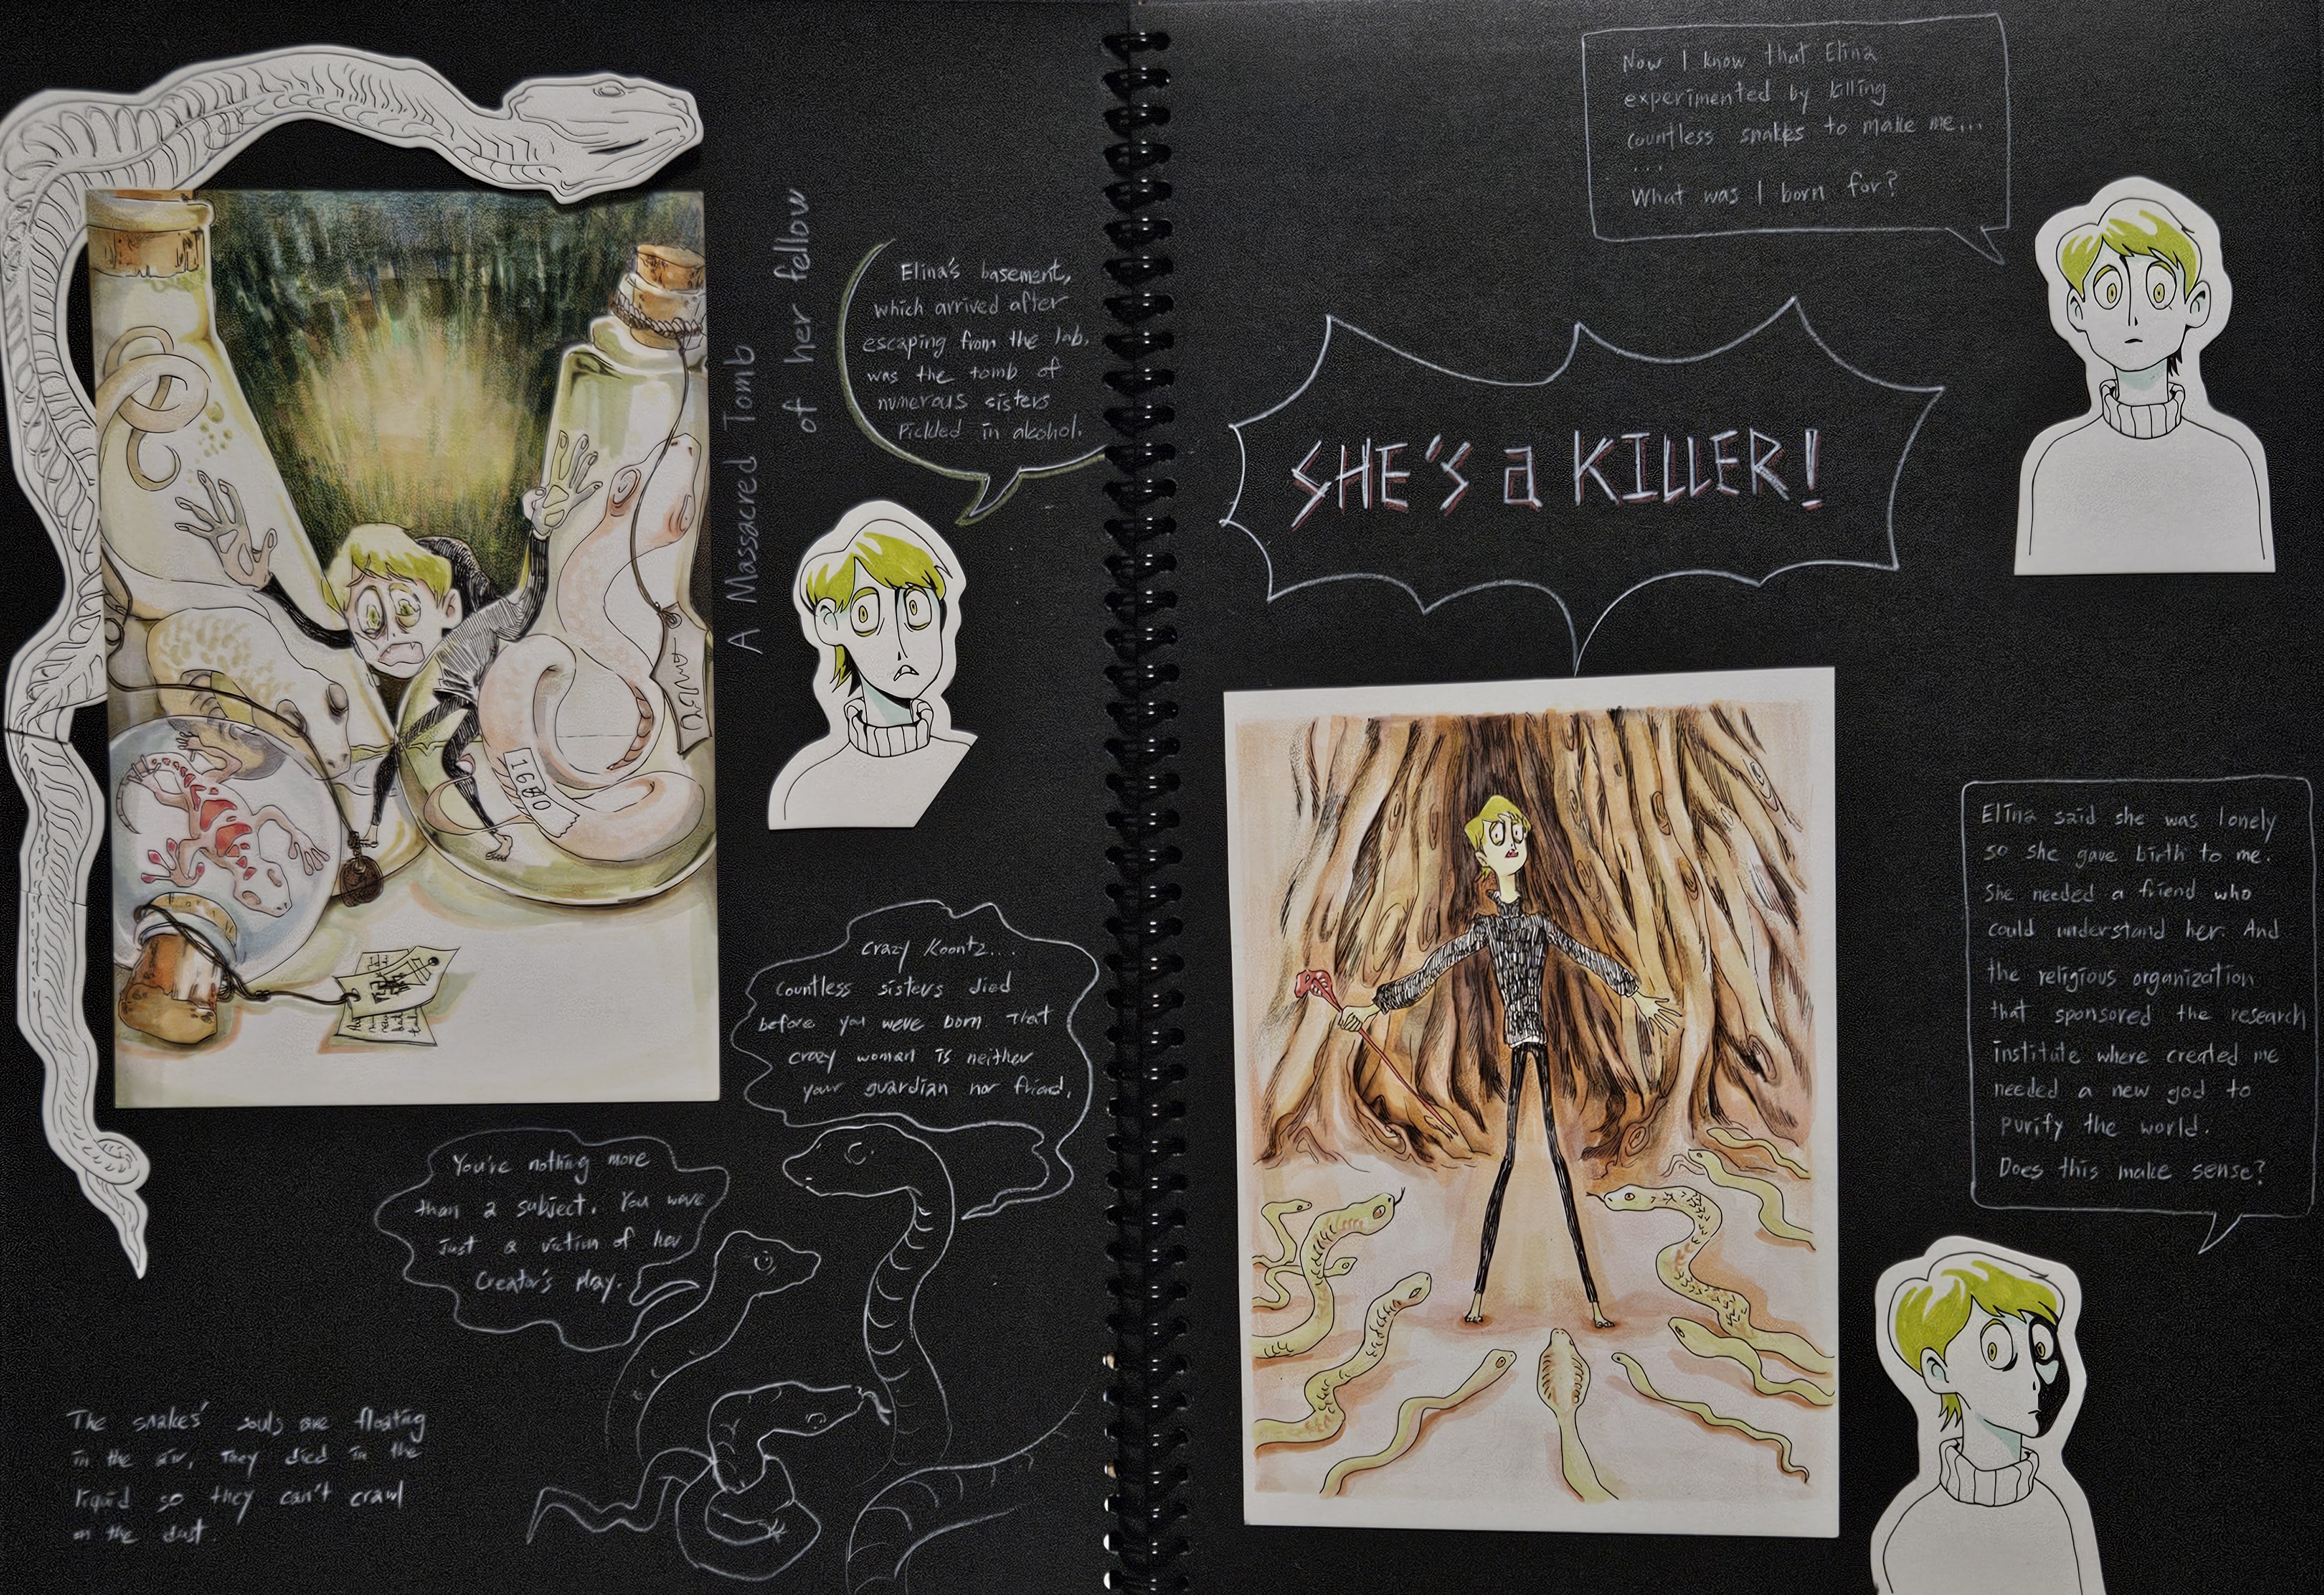 A Massacred Tomb
of her fellow
Elina's basement,
which arrived after
escaping from the lab,
was the tomb of
numerous sisters
Pickled in alcohol.
Crazy Koontz...
Countless sisters died
before you were born. That
crazy woman is neither
your guardian nor friend.
You're nothing more
than a subject. You were
Just a victim of her
Creator's play.
The snakes' souls are floating
in the air, They died in the
liquid so they can't crawl
on the dust.
Now I know that Elina
experimented by killing
countless snakes to make me...
...
What was I born for?
SHE'S a KILLER!
Elina said she was lonely
so she gave birth to me.
She needed a friend who
could understand her. And
the religious organization
that sponsored the research
institute where created me
needed a new god to
purify the world.
Does this make sense?